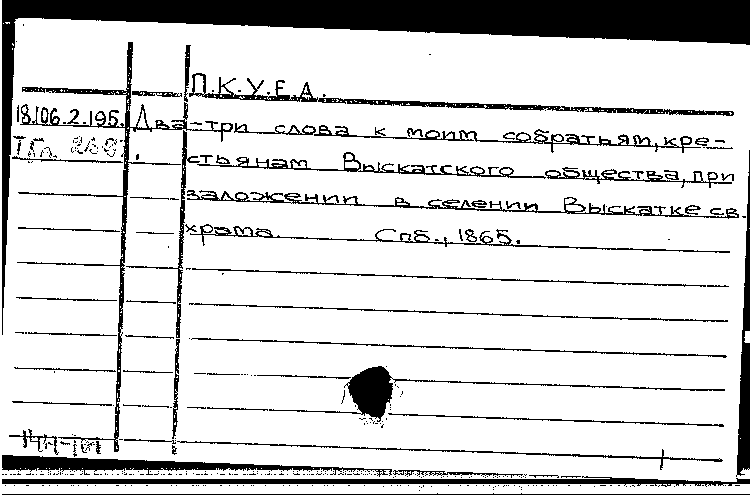 П.К.У.Е.А.
18.106.2.195. Два-три слова к моим собратьям, кре-
стьянам Выскатского общества, при
заложении в селении Выскатке св.
храма. Спб., 1865.